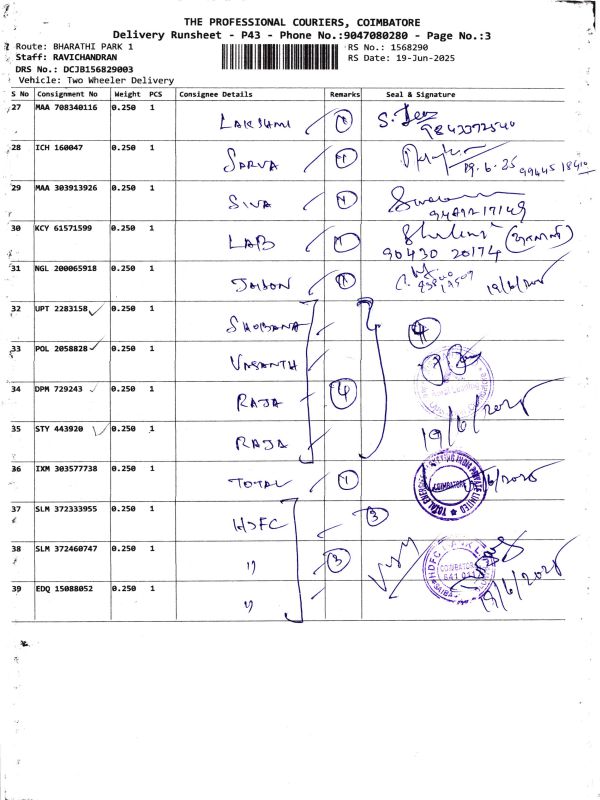 THE PROFESSIONAL COURIERS, COIMBATORE
Delivery Runsheet - P43 - Phone No.:9047080280 - Page No.:3
Route: BHARATHI PARK 1
RS No.: 1568290
Staff: RAVICHANDRAN
RS Date: 19-Jun-2025
DRS No.: DCJB156829003
Vehicle: Two Wheeler Delivery
S No Consignment No Weight PCS Consignee Details Remarks Seal & Signature
27 MAA 708340116 0.250 1 LAKSHMI 1
28 ICH 160047 0.250 1 SARVA 1 19.6.25
29 MAA 303913926 0.250 1 SIVA 1
30 KCY 61571599 0.250 1 LAB 1 90430 20174
31 NGL 200065918 0.250 1 1 19/6/2025
32 UPT 2283158 0.250 1 SHOBANA 4
33 POL 2058828 0.250 1 VASANTH
34 DPM 729243 0.250 1 RAJA 4
35 STY 443920 0.250 1 RAJA 19/6/2025
36 IXM 303577738 0.250 1 TOTAL 1 COIMBATORE
37 SLM 372333955 0.250 1 HDFC 3
38 SLM 372460747 0.250 1 " 3 HDFC BANK COIMBATORE 641 011
39 EDQ 15088052 0.250 1 " 19/6/2025